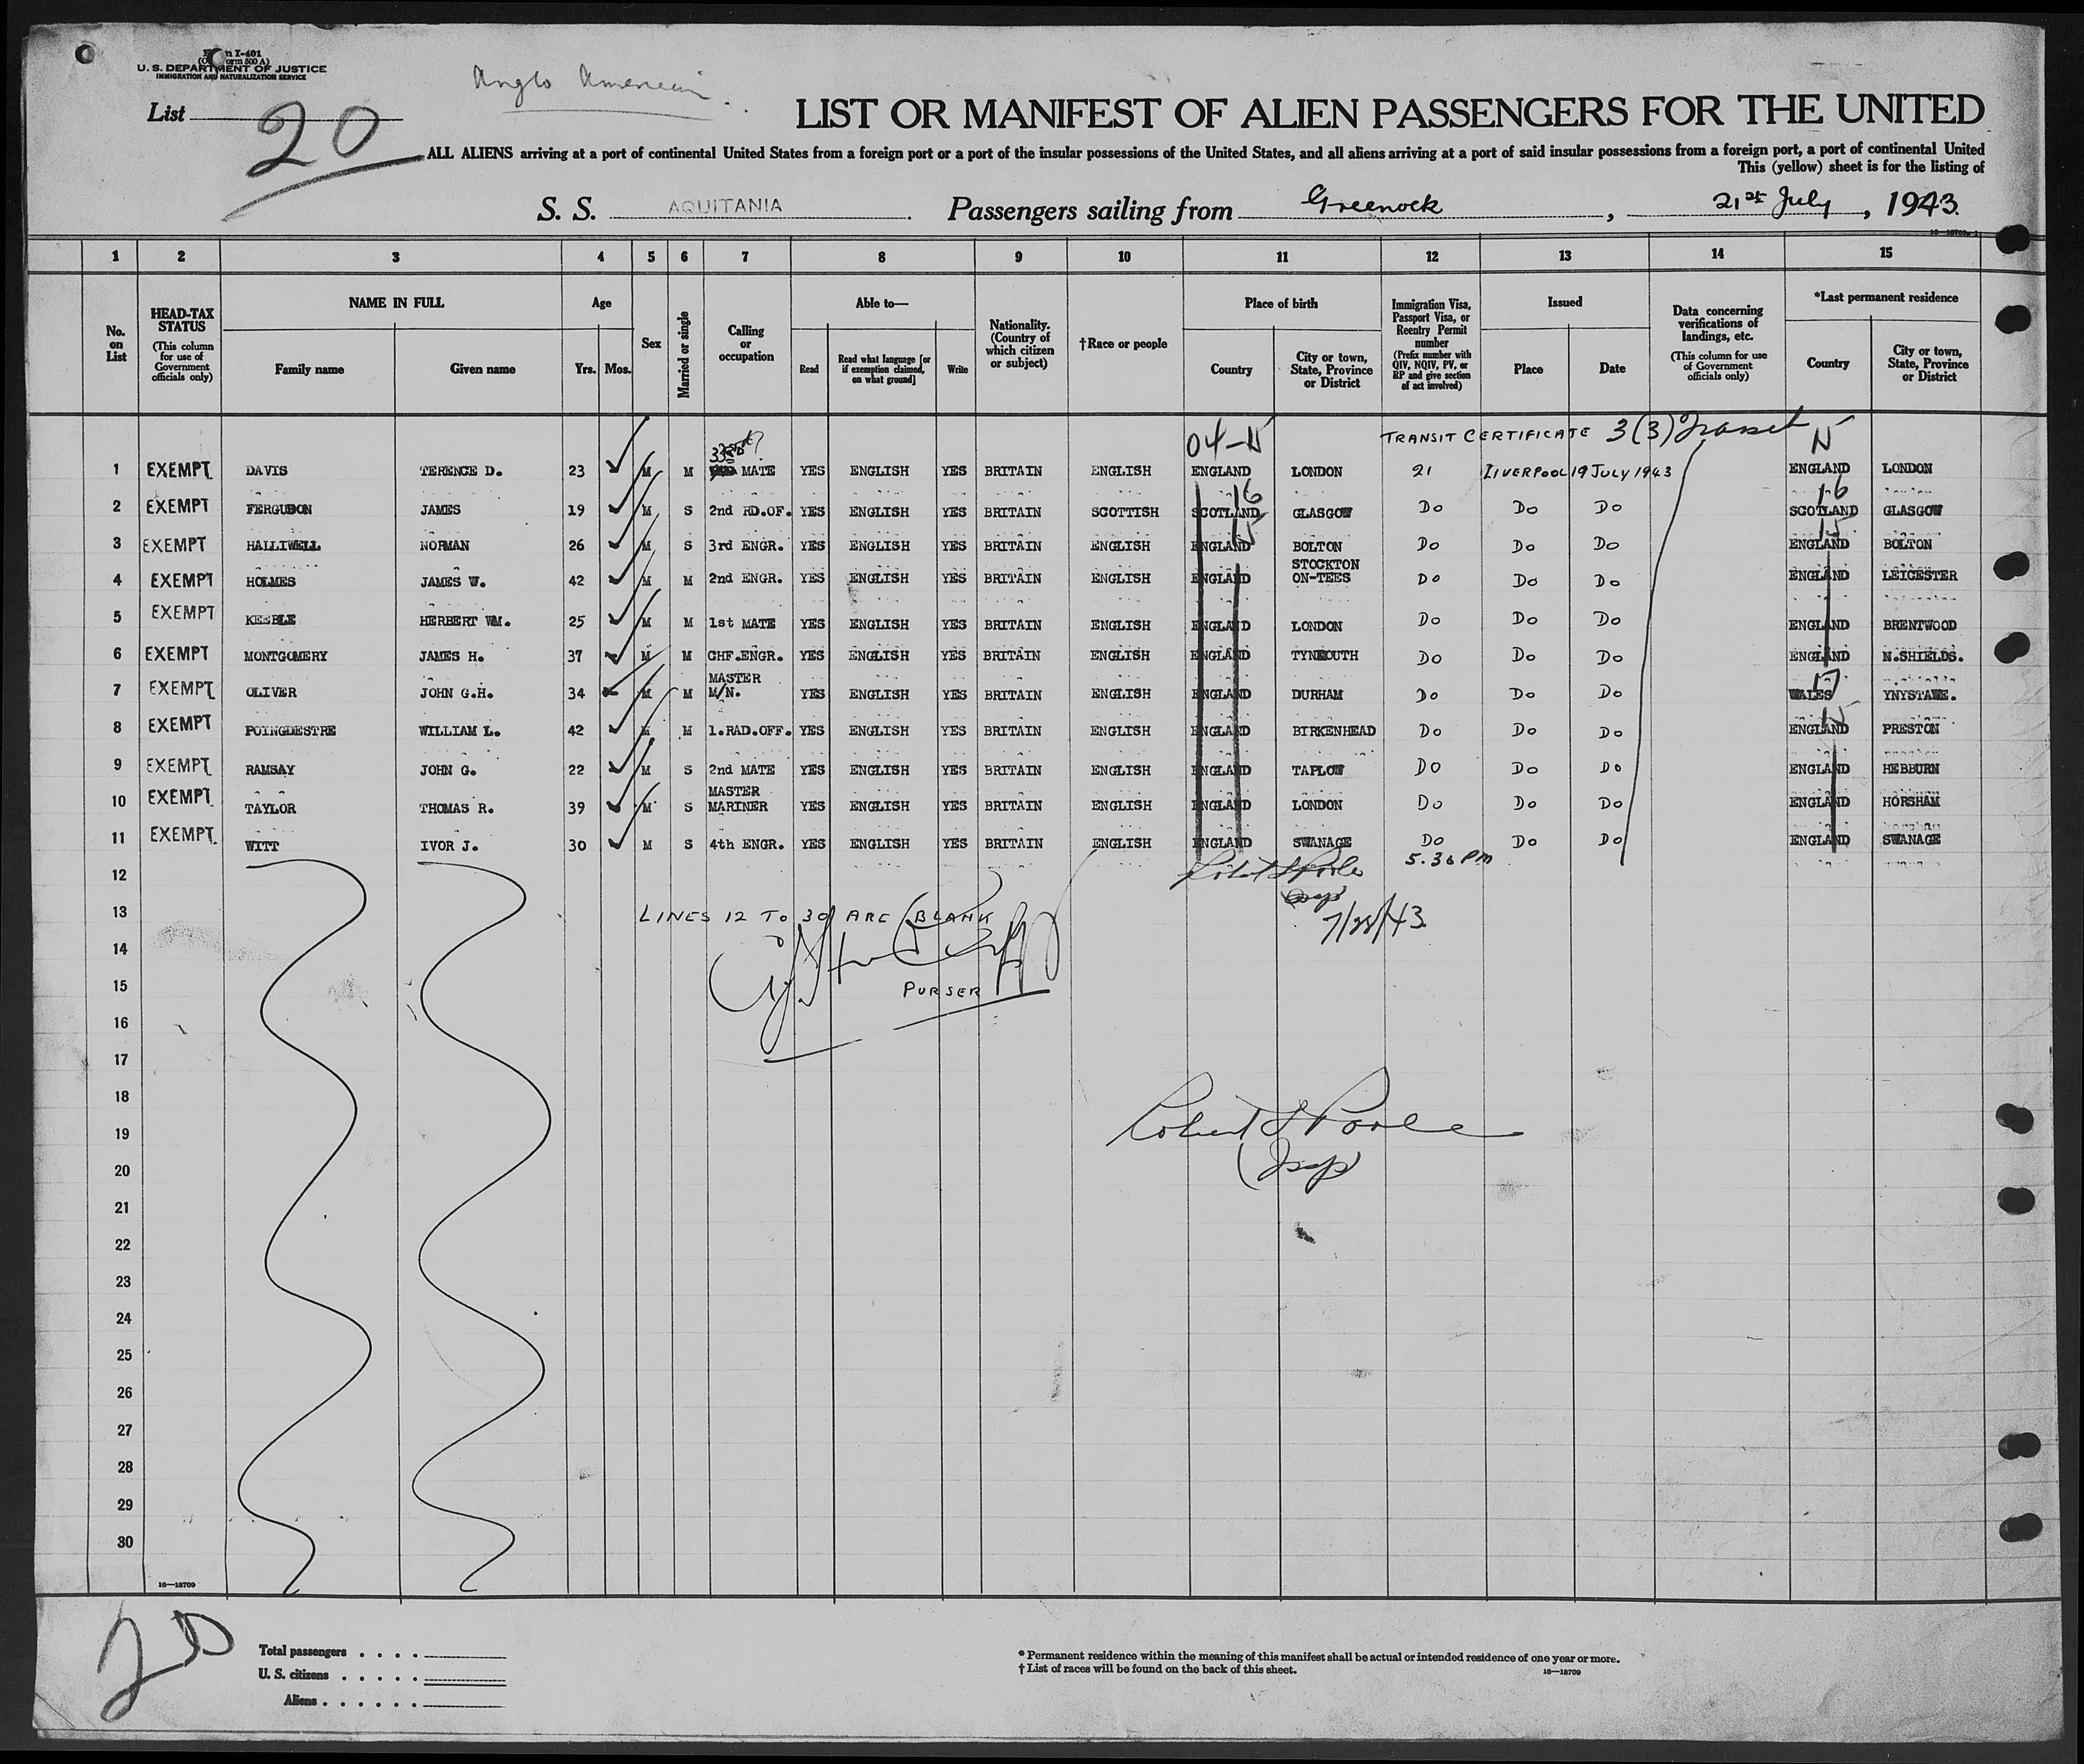 Form I-401
U. S. DEPARTMENT OF JUSTICE
IMMIGRATION AND NATURALIZATION SERVICE
Anglo American
List 20
LIST OR MANIFEST OF ALIEN PASSENGERS FOR THE UNITED
ALL ALIENS arriving at a port of continental United States from a foreign port or a port of the insular possessions of the United States, and all aliens arriving at a port of said insular possessions from a foreign port, a port of continental United
This (yellow) sheet is for the listing of
S. S. AQUITANIA Passengers sailing from Greenock, 21st July, 1943
1 2 3 4 5 6 7 8 9 10 11 12 13 14 15
No. on List
HEAD-TAX STATUS (This column for use of Government officials only)
NAME IN FULL Family name Given name
Age Yrs. Mos.
Sex
Married or single
Calling or occupation
Able to— Read Read what language [or if exemption claimed, on what ground] Write
Nationality. (Country of which citizen or subject)
†Race or people
Place of birth Country City or town, State, Province or District
Immigration Visa, Passport Visa, or Reentry Permit number (Prefix number with QIV, NQIV, PV, or RP and give section of act involved)
Issued Place Date
Data concerning verifications of landings, etc. (This column for use of Government officials only)
*Last permanent residence Country City or town, State, Province or District
04-15 TRANSIT CERTIFICATE 3(3) Transit
1 EXEMPT DAVIS TERENCE D. 23 M M MATE YES ENGLISH YES BRITAIN ENGLISH ENGLAND LONDON 21 LIVERPOOL 19 JULY 1943 ENGLAND LONDON
16 16
2 EXEMPT FERGUSON JAMES 19 M S 2nd RD.OF. YES ENGLISH YES BRITAIN SCOTTISH SCOTLAND GLASGOW Do Do Do SCOTLAND GLASGOW
15 15
3 EXEMPT HALLIWELL NORMAN 26 M S 3rd ENGR. YES ENGLISH YES BRITAIN ENGLISH ENGLAND BOLTON Do Do Do ENGLAND BOLTON
4 EXEMPT HOLMES JAMES W. 42 M M 2nd ENGR. YES ENGLISH YES BRITAIN ENGLISH ENGLAND STOCKTON ON-TEES Do Do Do ENGLAND LEICESTER
5 EXEMPT KEEBLE HERBERT WM. 25 M M 1st MATE YES ENGLISH YES BRITAIN ENGLISH ENGLAND LONDON Do Do Do ENGLAND BRENTWOOD
6 EXEMPT MONTGOMERY JAMES H. 37 M M CHF.ENGR. YES ENGLISH YES BRITAIN ENGLISH ENGLAND TYNEMOUTH Do Do Do ENGLAND N.SHIELDS.
17
7 EXEMPT OLIVER JOHN G.H. 34 M M MASTER M/N. YES ENGLISH YES BRITAIN ENGLISH ENGLAND DURHAM Do Do Do WALES YNYSTAWE.
15
8 EXEMPT POINGDESTRE WILLIAM L. 42 M M 1.RAD.OFF. YES ENGLISH YES BRITAIN ENGLISH ENGLAND BIRKENHEAD Do Do Do ENGLAND PRESTON
9 EXEMPT RAMSAY JOHN G. 22 M S 2nd MATE YES ENGLISH YES BRITAIN ENGLISH ENGLAND TAPLOW Do Do Do ENGLAND HEBBURN
10 EXEMPT TAYLOR THOMAS R. 39 M S MASTER MARINER YES ENGLISH YES BRITAIN ENGLISH ENGLAND LONDON Do Do Do ENGLAND HORSHAM
11 EXEMPT WITT IVOR J. 30 M S 4th ENGR. YES ENGLISH YES BRITAIN ENGLISH ENGLAND SWANAGE Do Do Do ENGLAND SWANAGE
12 Robert S Poole 5.30 PM
Insp
13 LINES 12 TO 30 ARE BLANK 7/28/43
14
15 PURSER
16
17
18
19 Robert S Poole
20 (Insp)
21
22
23
24
25
26
27
28
29
30
16—18709
20
Total passengers
U. S. citizens
Aliens
* Permanent residence within the meaning of this manifest shall be actual or intended residence of one year or more.
† List of races will be found on the back of this sheet. 16—18709